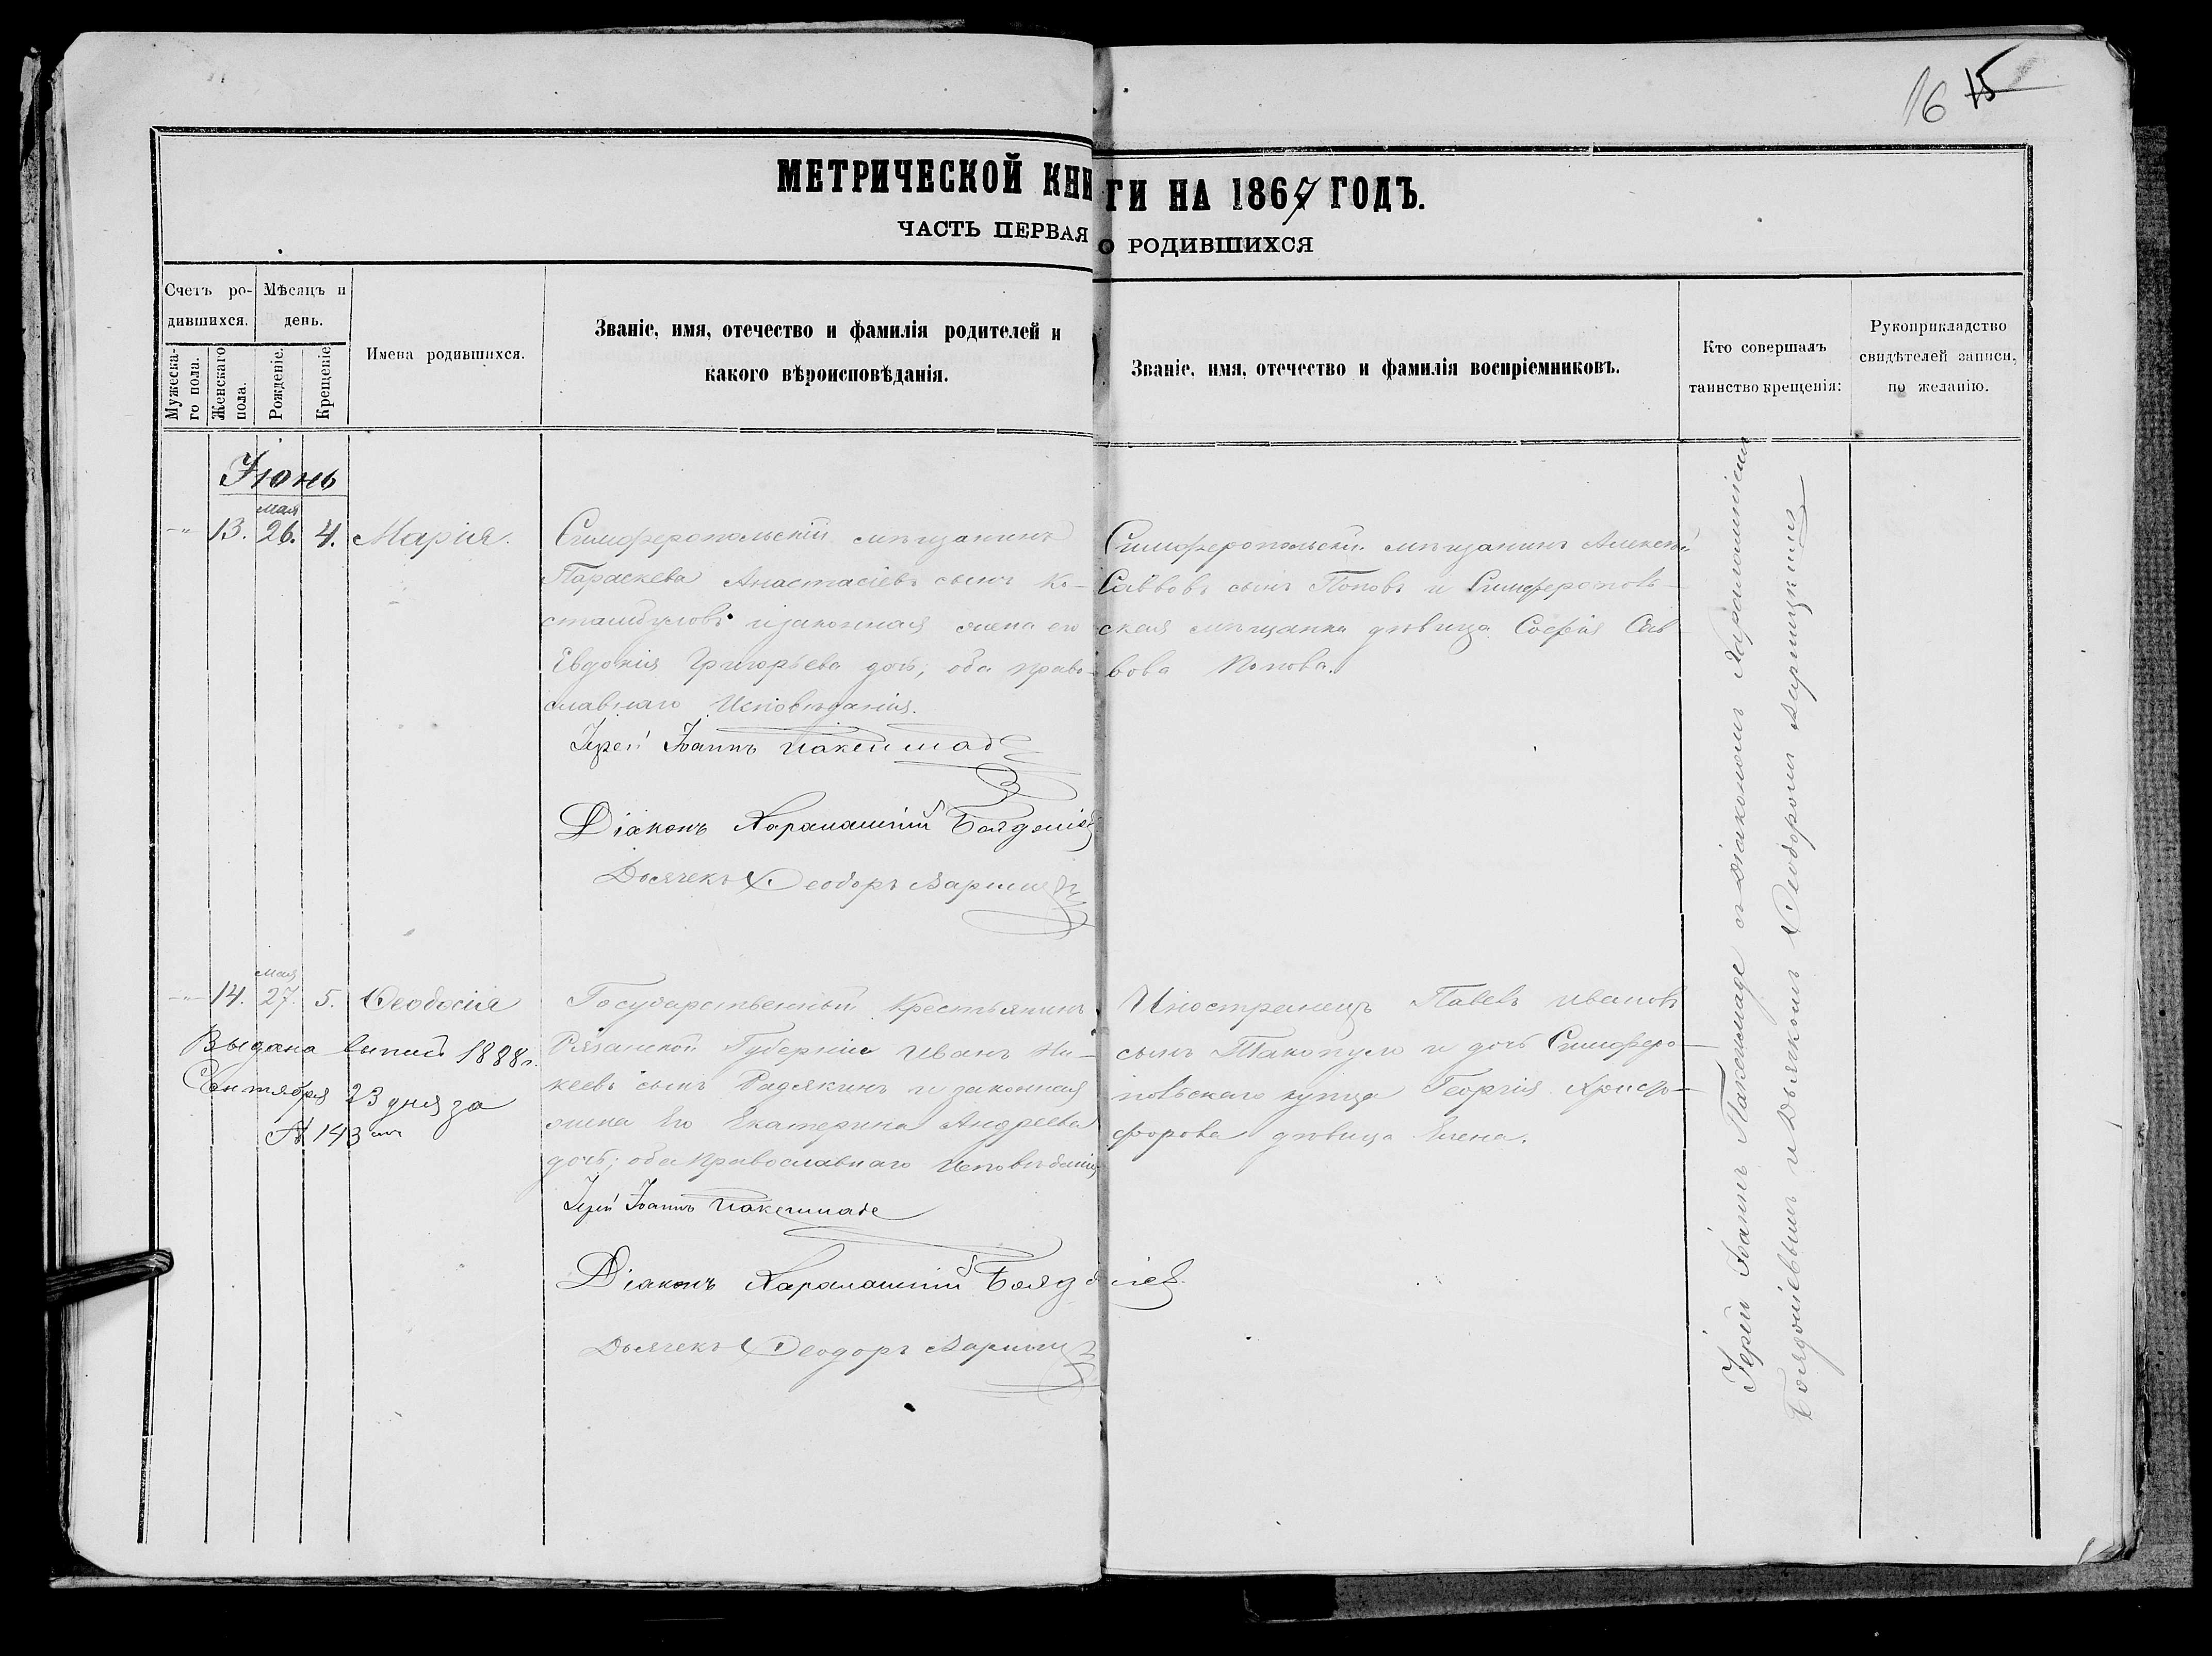 16 15
МЕТРИЧЕСКОЙ КНИГИ НА 1867 ГОДЪ.
ЧАСТЬ ПЕРВАЯ О РОДИВШИХСЯ
Счетъ ро-
дившихся.
Мужеска-
го пола.
Женскаго
пола.
Мѣсяцъ и
день.
Рожденіе.
Крещеніе.
Имена родившихся.
Званіе, имя, отечество и фамилія родителей и
какого вѣроисповѣданія.
Званіе, имя, отечество и фамилія воспріемниковъ.
Кто совершалъ
таинство крещенія:
Рукоприкладство
свидѣтелей записи,
по желанію.
Іюнь
мая
-"- 13. 26. 4. Марія.
Симферопольскій мѣщанинъ
Параскева Анастасіевъ сынъ Ко-
стамбуловъ и законная жена его
Евдокія Григорьева дочь, оба право-
славнаго Исповѣданія.
Іерей Іоаннъ
Діаконъ Харалампій
Дьячекъ Ѳеодоръ
Симферопольскій мѣщанинъ Алексѣй
Саввовъ сынъ Поповъ и Симферополь-
ская мѣщанка дѣвица Софія Сав-
вова Попова.
мая
-"- 14. 27. 5. Ѳеодосія
Выдана выпись 1888 г.
Сентября 23 дня за
№ 143
Государственный Крестьянинъ
Рязанской Губерніи Иванъ Ми-
хеевъ сынъ Радякинъ и законная
жена Его Екатерина Андреева
дочь; оба Православнаго Исповѣданія
Іерей Іоаннъ
Діаконъ Харалампій
Дьячекъ Ѳеодоръ
Иностранецъ Павелъ Ивановъ
сынъ Такопуло и дочь Симферо-
польскаго купца Георгія Христо-
форова дѣвица Елена.
Іерей Іоаннъ съ Діакономъ Харалампіемъ
и Дьячкомъ Ѳеодоромъ